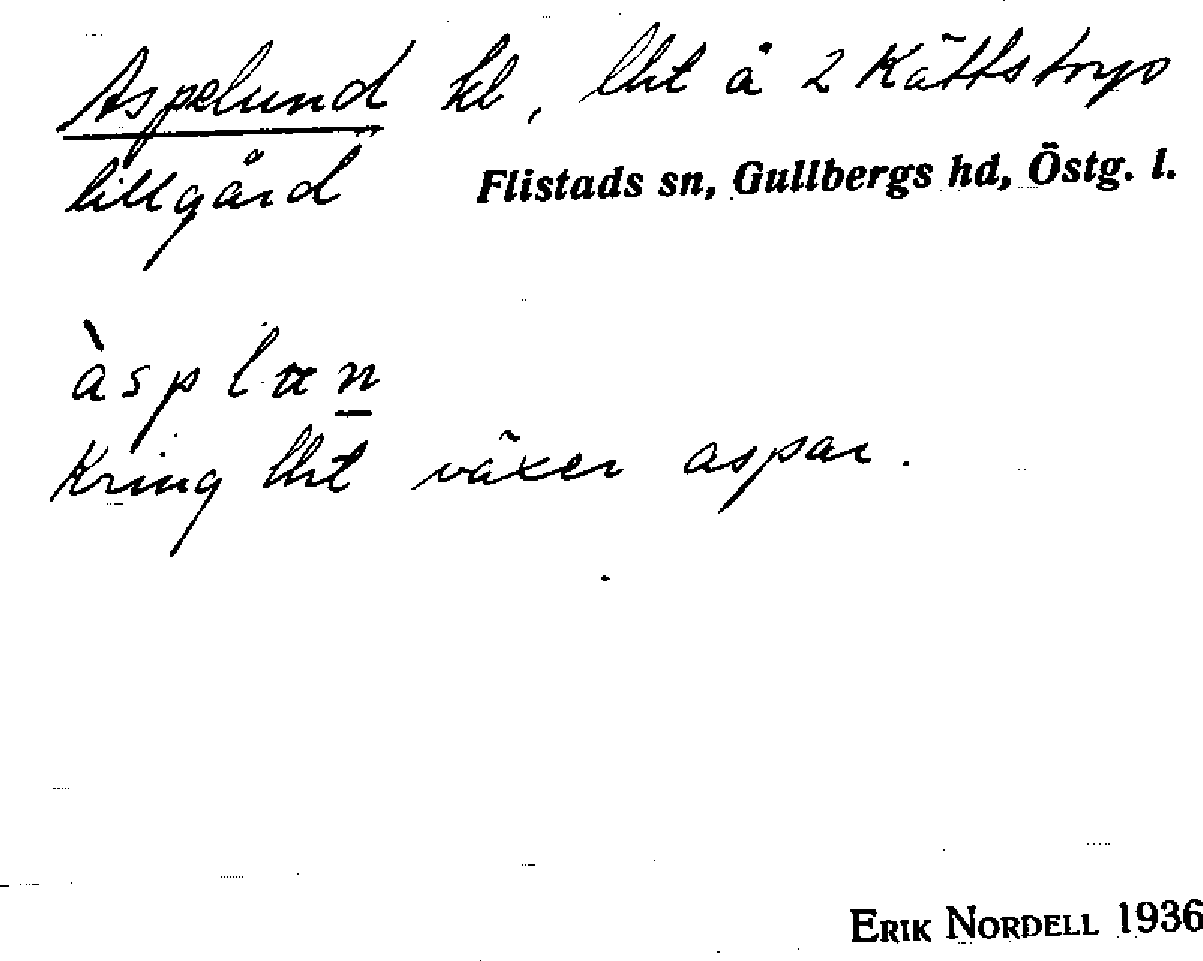 Aspelund hl, lht å 2 Kättstorps
lillgård Flistads sn, Gullbergs hd, Östg. l.
Kring lht växer aspar.
ERIK NORDELL 1936